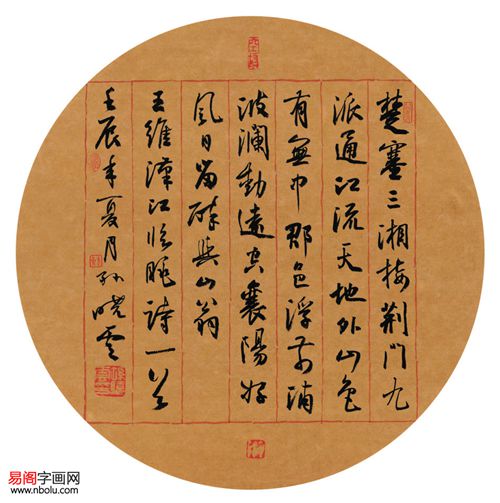 楚塞三湘接荆門九
派通江流天地外山色
有無中郡邑浮前浦
波瀾動遠空襄陽好
風日留醉與山翁
王維漢江临眺詩一首
壬辰年夏月孙晓雲
易阁字画网
www.nbolu.com